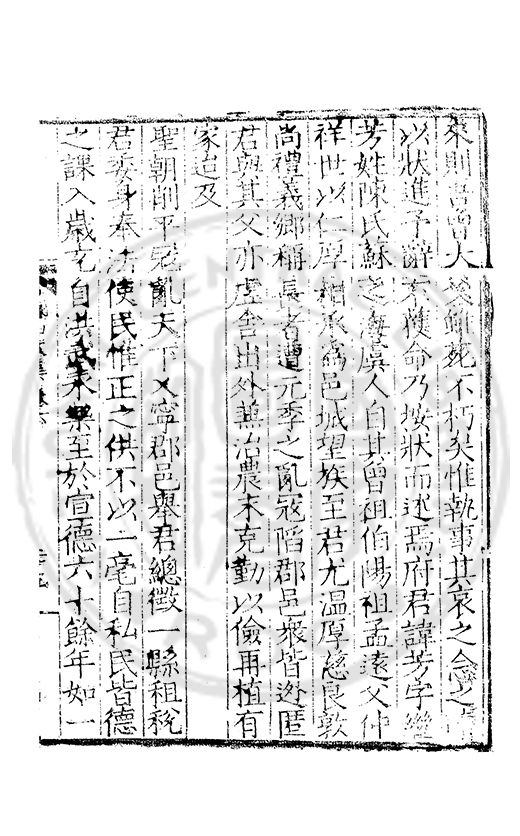 來則吾曹大 雖死不朽矣惟執事其哀之念之
以狀進予辭不獲命乃按狀而述焉府君諱芳字繼
芳姓陳氏蘇之海虞人自其曾祖伯陽祖孟遠父仲
祥世以仁厚相承為邑城望族至君尤溫厚慈良敦
尚禮義鄉稱長者遭元季之亂寇陷郡邑眾皆逃匿
君與其父亦虛舍出外兼治農末克勤以儉再植有
家迨及
聖朝削平冦亂天下乂寧郡邑舉君總徵一縣租稅
君委身奉法使民惟正之供不以一毫自私民皆德
之課入歲充自洪武永樂至於宣德六十餘年如一